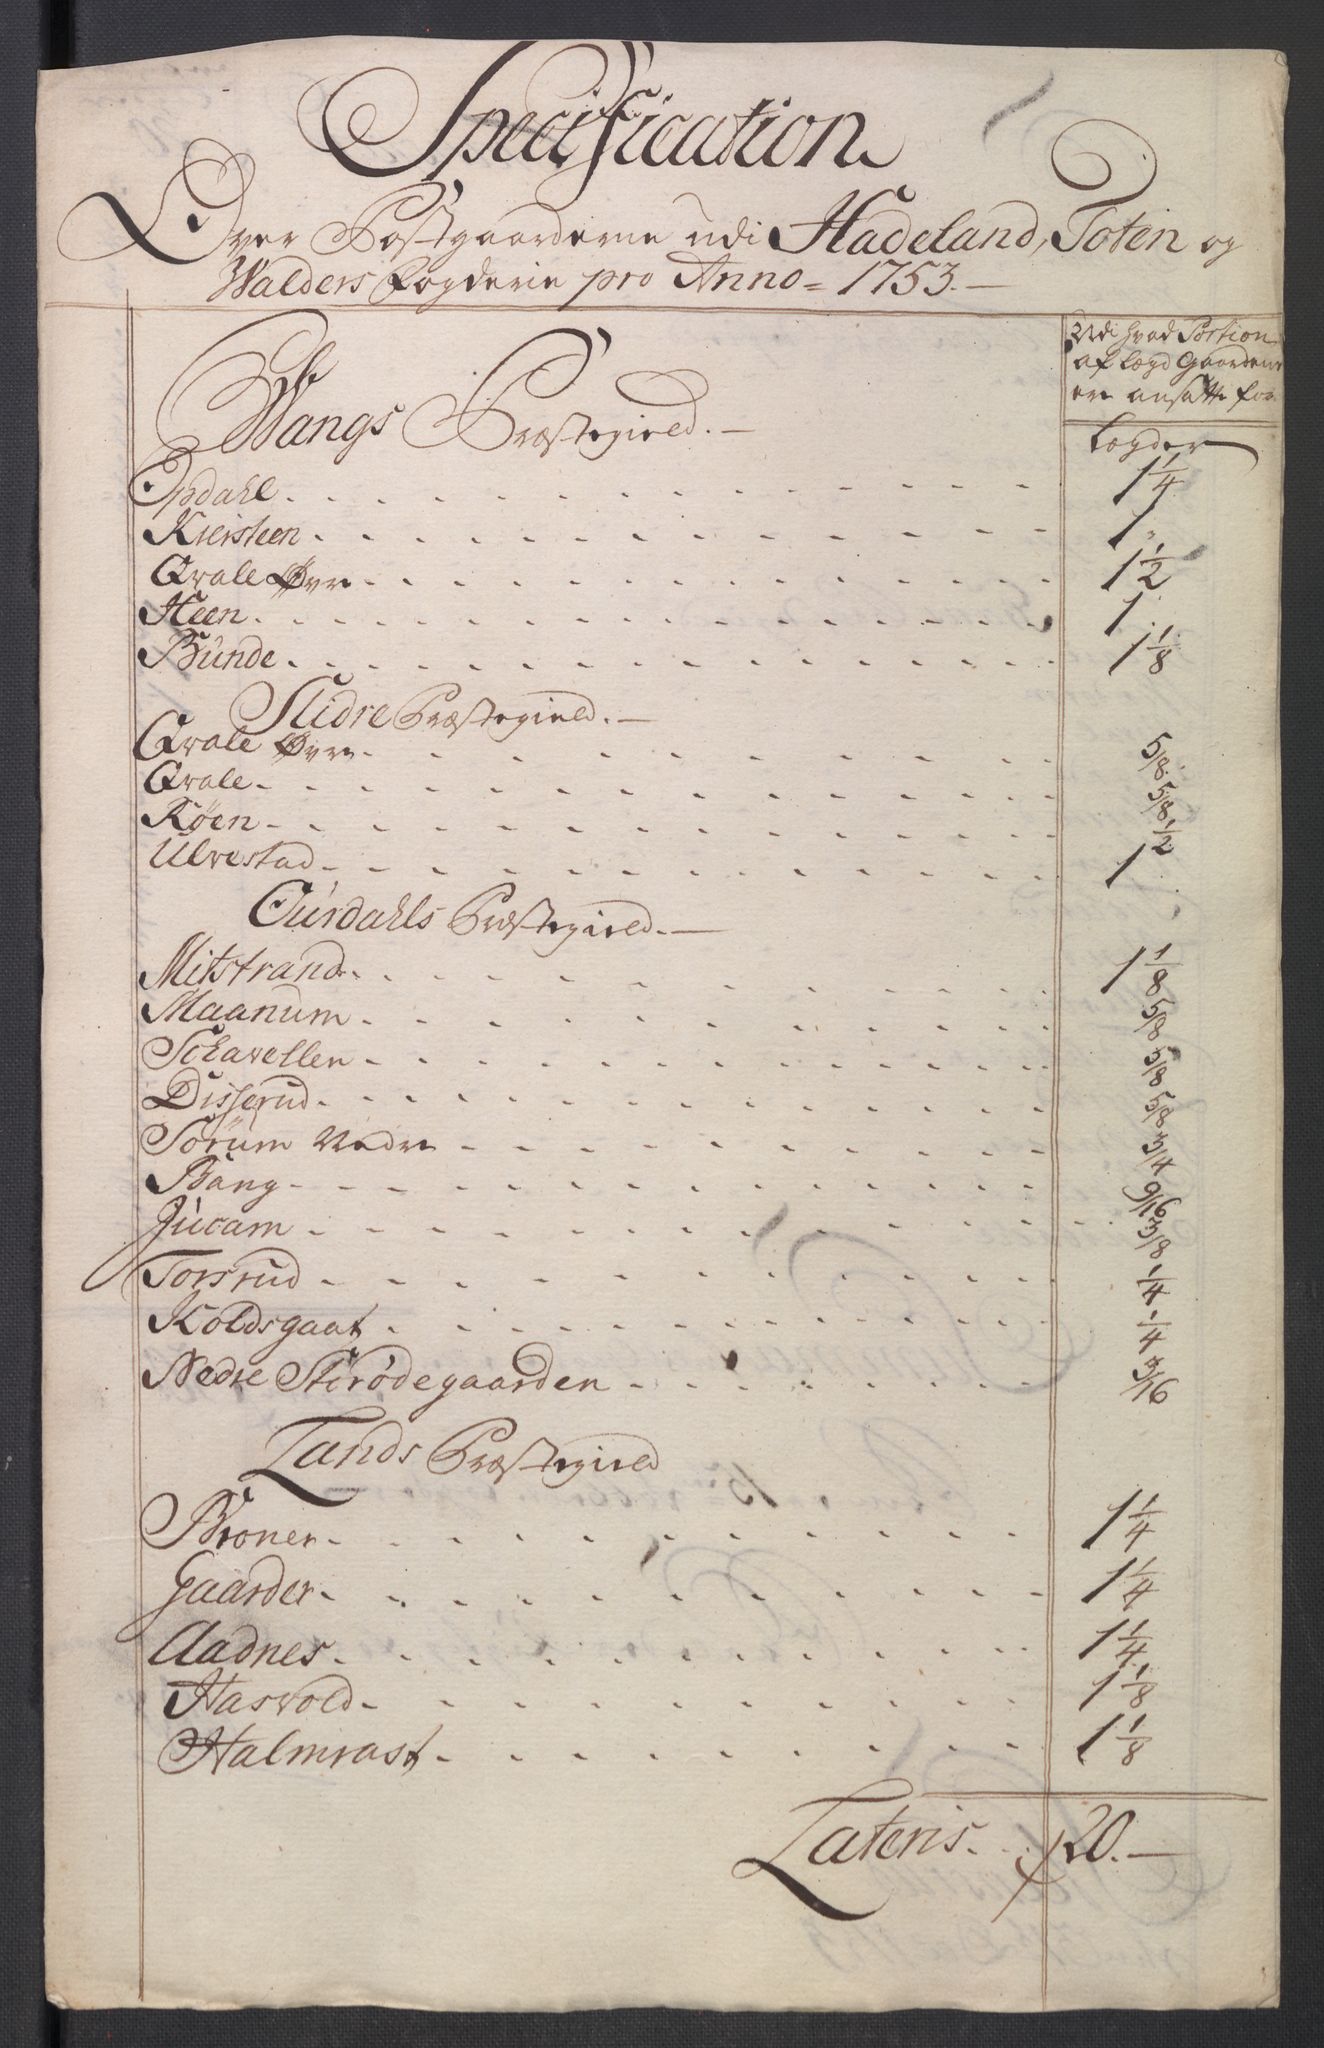 Specification
Over Postgaarderne udi Hadeland, Toten og
Walders Fogderie pro Anno = 1753.
Udi hvad Portion
af Lægd Gaardene
ere ansatte for
Wangs Præstegield.
Lægder
Opdahl. 1 1/4
Kiersteen. 1.
Qvale Øvre. 1 1/2
Heen. 1.
Bunde. 1 1/8
Slidre Præstegield.
Qvale Øvre. 5/8.
Qvale. 5/8
Røen. 1/2
Ulvestad. 1
Ourdahls Præstegield.
Mitstrand. 1 1/8
Maanum. 5/8
Schavellen. 5/8
Disserud. 5/8
Sørum Nedre 3/4
Bang. 9/16
Juvam. 3/8
Torsrud. 1/4
Koldsgaat. 1/4
Nedre Strødegaarden. 3/16
Lands Præstegield
Broner. 1 1/4
Gaarder. 1 1/4
Aadnes. 1 1/4
Hasvold. 1 1/8
Halmrast. 1 1/8
Lateris. 20.